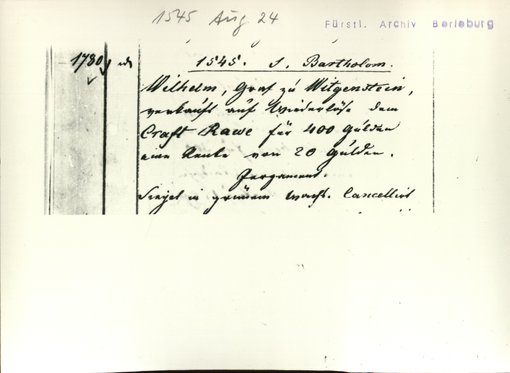 1545 Aug 24
Fürstl. Archiv Berleburg
1780
1545. S. Bartholom.
Wilhelm, Graf zu Witgenstein,
verkauft auf Wiederlöse dem
Craft Rawe für 400 Gulden
eine Rente von 20 Gulden.
Pergament.
Siegel in grünem Wachs. Cancellirt